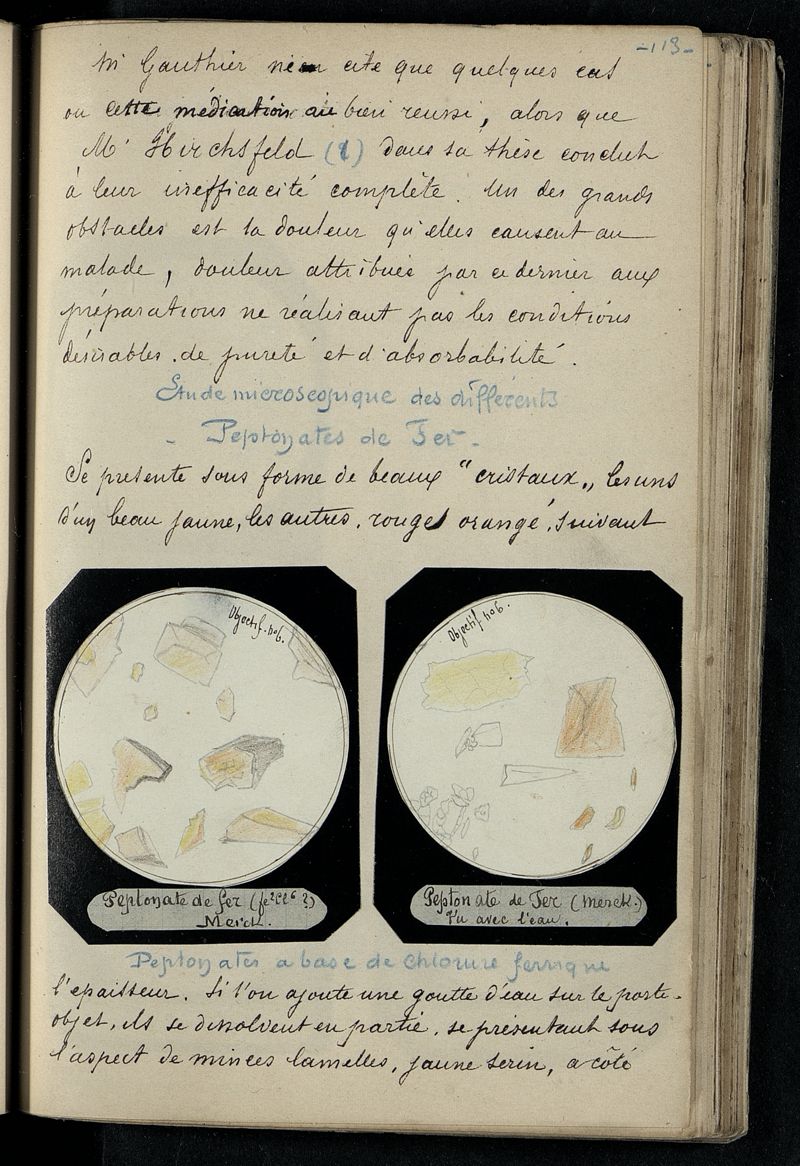 -113-
Mr Gauthier n'en cite que quelques cas
ou cette médication ait bien reussi, alors que
Mr Hirchsfeld (1) dans sa thèse conclut
à leur inefficacité complète. Un des grands
obstacles est la douleur qu'elles causent au
malade, douleur attribuée par ce dernier aux
préparations ne réalisant pas les conditions
désirables de pureté et d'absorbabilité.
Etude microscopique des différents
- Peptonates de Fer -
Se présente sous forme de beaux "cristaux„ les uns
d'un beau jaune, les autres, rouge orangé, suivant
Objectif. no6.
Peptonate de fer (fe2Cl6 ?)
Merck.
Objectif no6.
Peptonate de Fer (Merck.)
Vu avec l'eau.
Peptonates a base de chlorure ferrique
l'epaisseur. Si l'on ajoute une goutte d'eau sur le porte-
objet, ils se dissolvent en partie, se présentant sous
l'aspect de minces lamelles, jaune serin, a côté